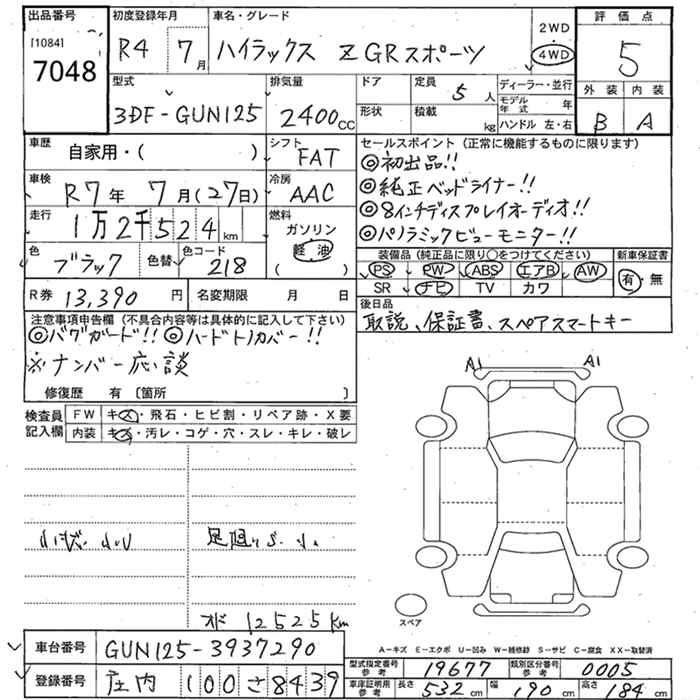 出品番号 初度登録年月 車名・グレード 評価点
[1084] 7048 R4 7月 ハイラックス Z GRスポーツ 2WD 4WD 5
型式 排気量 ドア 定員 5人 ディーラー・並行 外装 内装
3DF-GUN125 2400cc 形状 積載 kg モデル年式 年 ハンドル 左・右 B A
車歴 自家用・( ) シフト FAT セールスポイント(正常に機能するものに限ります)
◎初出品!!
車検 R7年 7月(27日) 冷房 AAC
◎純正ベッドライナー!!
◎8インチディスプレイオーディオ!!
走行 1万2千524km 燃料 ガソリン 軽油 ( )
◎パノラミックビューモニター!!
色 ブラック 色替 色コード 218
装備品(純正品に限り○をつけてください) 新車保証書
PS PW ABS エアB AW 有・無
SR ナビ TV カワ
R券 13,390円 名変期限 月 日
後日品
取説、保証書、スペアスマートキー
注意事項申告欄(不具合内容等は具体的に記入して下さい)
◎バグガード!! ◎ハードトノカバー!!
※ナンバー応談
修復歴 有〔箇所 〕
検査員記入欄 FW キズ・飛石・ヒビ割・リペア跡・X要
内装 キズ・汚レ・コゲ・穴・スレ・キレ・破レ
A1 A1
オド 12525km
スペア
A-キズ E-エクボ U-凹み W-補修跡 S-サビ C-腐食 XX-取替済
車台番号 GUN125-3937290
型式指定番号参考 19677 類別区分番号参考 0005
登録番号 庄内 100 さ 8439
車庫証明用参考 長さ 532cm 幅 190cm 高さ 184cm